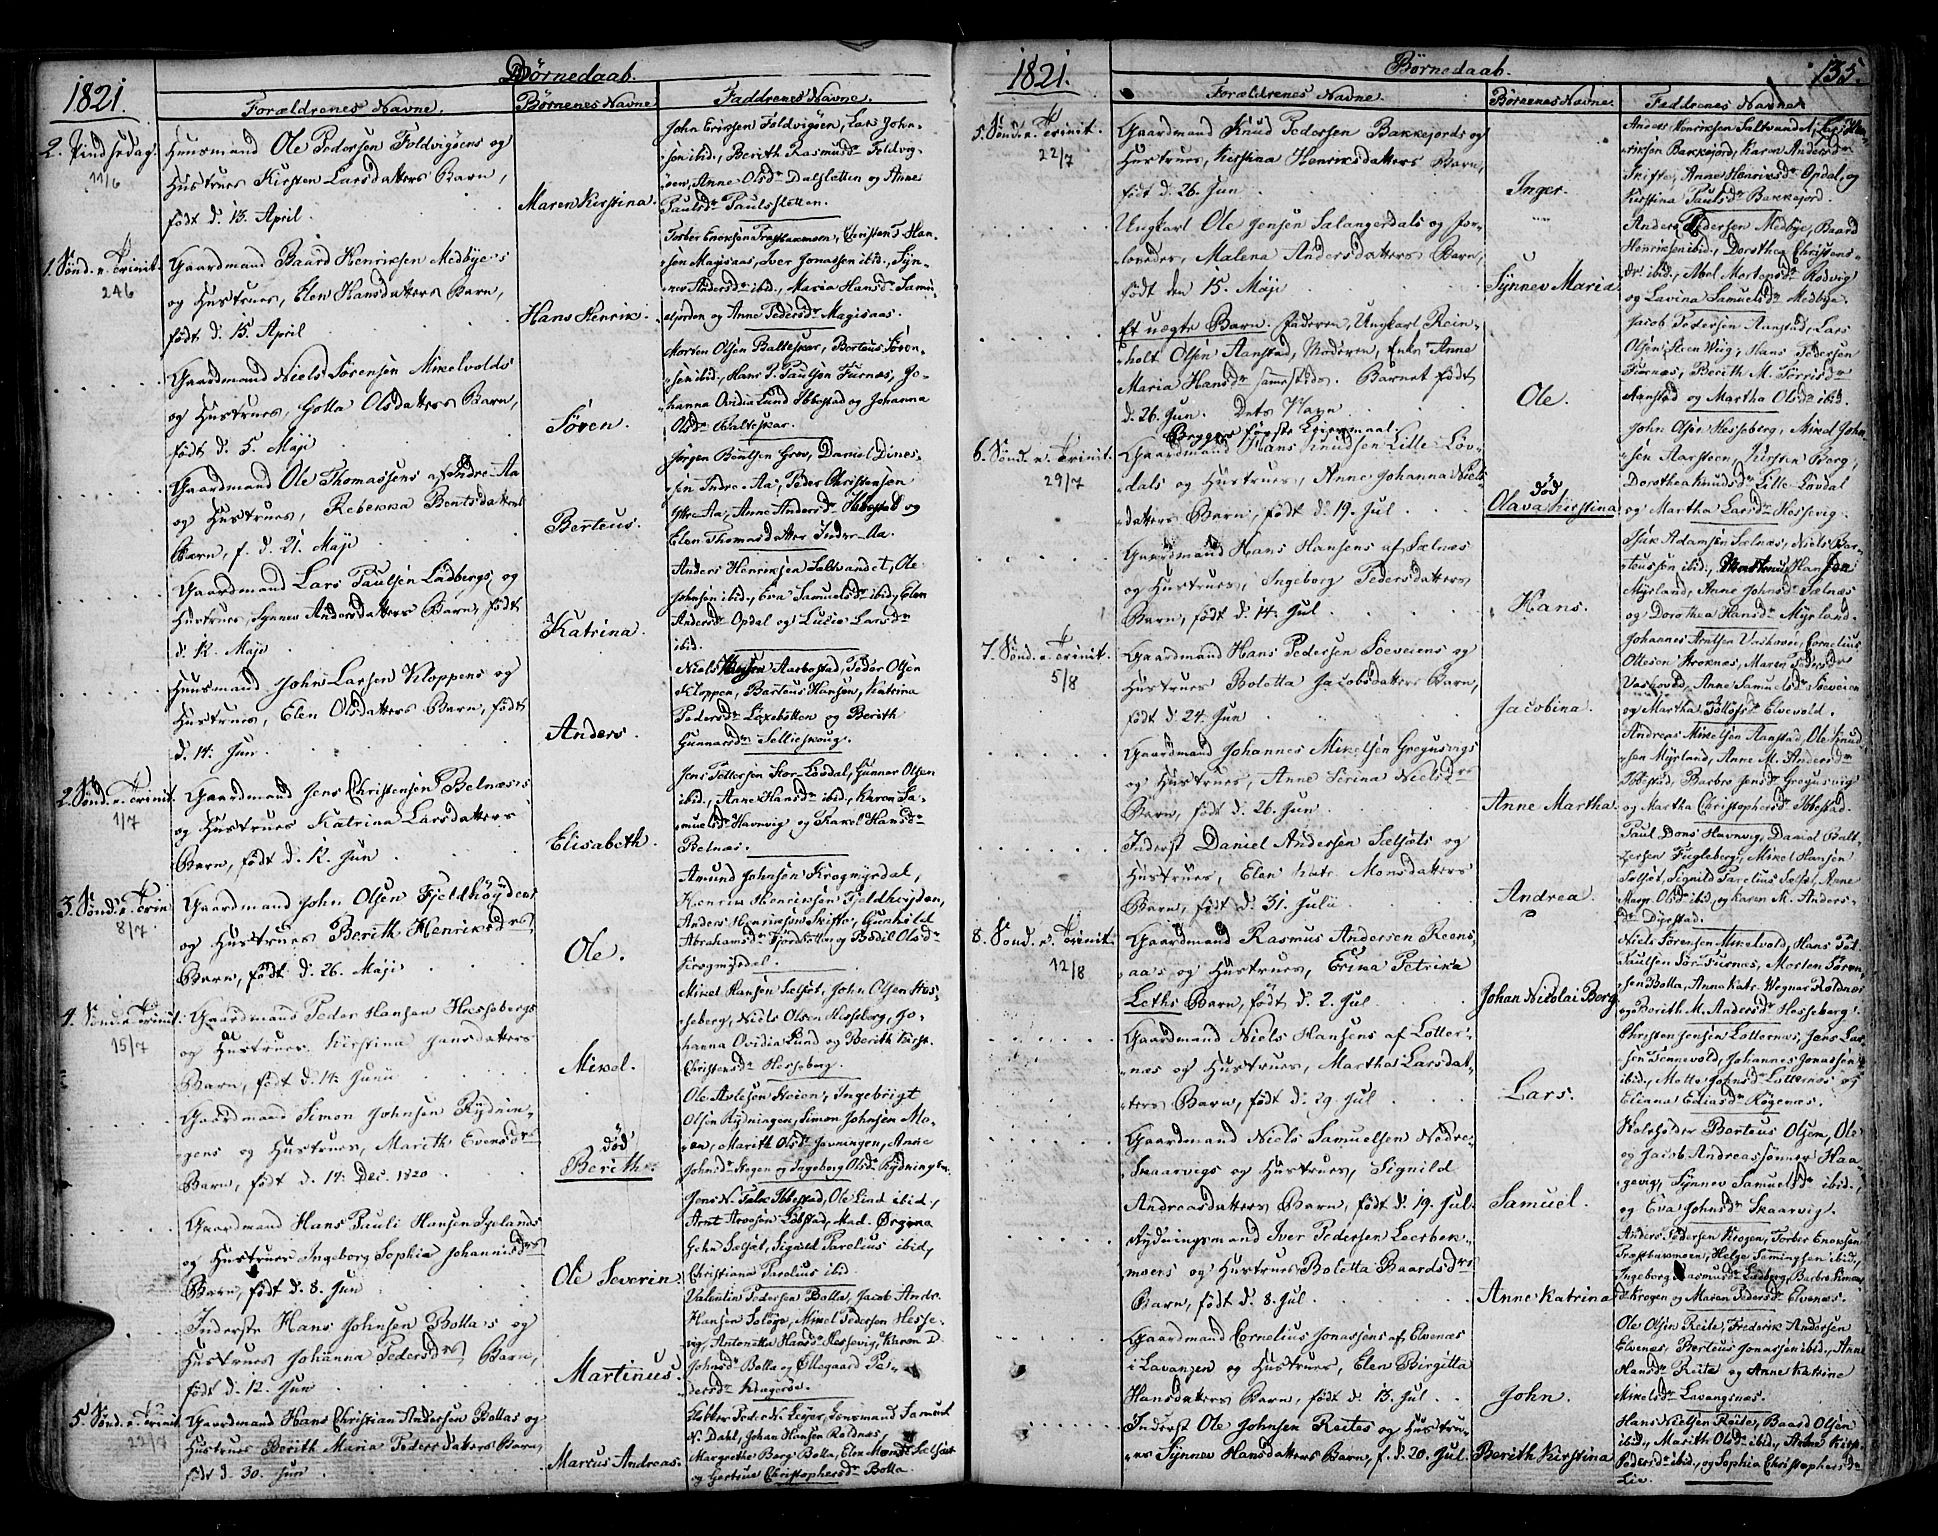 1821.
Børnedaab.
Forældrenes Navne.
Børnenes Navne
Faddrenes Navne.
2. Pindsedag
11/6
Huusmand Ole Pedersen Foldvigöens og
Hustrues Kirsten Larsdatters Barn,
født d. 13. April.
Maren Kirstina.
John Ericsen Foldvigöen, Lars John-
sen ibid., Berith Rasmusdr Foldvig-
öen, Anne Olsdr Dalsletten og Anne
Paulsdr Paulsletten.
1. Sønd. e. Trinit.
24/6
Gaardmand Baard Henriksen Medbye's
og Hustrues, Elen Hansdatters Barn,
født d. 15 April
Hans Henrik.
Torber Enoksen Træsbakmoen, Christen Han-
sen Magisaas, Iver Jonassen ibid., Syn-
nev Andersdr ibid., Maria Hansdr
og Anne Pedersdr Magisaas.
Gaardmand Niels Sørensen Mikelvolds
og Hustrues, Golla Olsdatters Barn,
født d. 5. Maji
Søren.
Morten Olsen Balteskar, Berteus Søren-
sen ibid., Hans P. Paulsen Furnæs, Jo-
hanna Ovidia Lund Ibbestad og Johanna
Olsdr Balteskar.
Gaardmand Ole Thomassens af Indre-Aa
og Hustrues, Rebekka Bentsdatters
Barn, f. d. 21. Maji
Berteus.
Jørgen Bentsen Grov, Daniel Dines-
sen Indre-Aa, Peder Christensen
Ytre-Aa, Anne Andersdr Ibbestad og
Elen Thomasdatter Inder-Aa.
Gaardmand Lars Paulsen Ladbergs og
Hustrues, Synnev Andersdatters Barn, født
d. 12. Maji
Katrina.
Anders Henriksen Saltvandet, Ole
Johnsen ibid., Eva Samuelsdr ibid., Elen
Andersdr Opdal og Lucie Larsdr
ibid.
Huusmand John Larsen Kloppens og
Hustrues, Elen Olsdatters Barn, født
d. 14. Jun
Anders.
Niels Aarbostad, Peder Olsen
Kloppen, Barteus Hansen, Katrina
Pedersdr Laxebotten og Berith
Gunnarsdr Sellieskoug.
2. Sønd. e. Trinit.
1/7
Gaardmand Jens Christensen Belnæs's
og Hustrues Katrina Larsdatters
Barn, født d. 12. Jun
Elisabeth.
Jens Pettersen Stor-Løvdal, Gunner Olsen
ibid., Anne Hansdr ibid., Karen Sa-
muelsdr Havnvig og Rakel Hansdr
Belnæs.
3. Sønd. e. Trin.
8/7.
Gaardmand John Olsen Fjeldhöydens
og Hustrues Berith Henriksdrs
Barn, født d. 26. Maji
Ole.
Amund Johnsen Krogmyrdal,
Henrik Henriksen Fjeldhøiden,
Anders Henriksen Skifte, Gunhild
Abrahamsdr Fjordbotten og Bodil Olsdr
Krogmyrdal.
4. Sønd. e. Trinit.
15/7
Gaardmand Peder Hansen Hassebergs
og Hustrues Kirstina Jansdatters
Barn, født d. 14. Junii
Mikel.
Mikel Hansen Sælsøt, John Olsen Hes-
seberg, Niels Olsen Hesseberg, Jo-
hanna Ovidia Lund og Berith Kirst.
Christensdr Hesseberg.
Gaardmand Simon Johnsen Rydnin-
gens og Hustrues, Marith Evensdrs
Barn, født d. 14. Dec. 1820
død
Berith
Ole Avlesen Steien, Ingebrigt
Olsen Rydningen, Simon Johnsen Mo-
en, Marith Olsdr Jovningen, Anne
Johnsdr Stegen og Ingeborg Olsdr Rydningen.
Gaardmand Hans Pauli Hansen Igelands
og Hustrues Ingeborg Sophia Johannisdrs
Barn, født d. 8. Jun
Ole Severin.
Jens N. Falk Ibbestad, Ole Lind ibid.,
Arnt Aroesen Løbstad, Mad. Ørgina
Gehn Sælsøt, Signild Parelius ibid,
Christiana Parelius ibid.
Inderste Hans Johnsen Bolla's og
Hustrues Johanna Pedersdrs Barn,
født d. 12. Jun
Martinus.
Valentin Pedersen Bolla, Jacob Andr.
Hansen Soløge, Mikel Pedersen Hesse-
vig, Antonetta Hansdr Hessevig, Karen D.
Johnsdr Bolla og Ollegaard Pe-
dersdr Klingeröe.
5. Sønd. e. Trinit.
22/7
Gaardmand Hans Christian Andersen Bollas og
Hustrues Berith Maria Pedersdatters Barn,
født d. 30. Jun
Marcus Andreas.
Klokker Peder N. Leyer, Lensmand Samuel
N. Dahl, Johan Hansen Roldnæs,
Margrethe Berg Bolla, Elen Monsdr Sælsöt
og Gertrue Christophersdr Bolla.
1821.
Børnedaab.
135.
Forældrenes Navne.
Børnenes Navne.
Faddrenes Navne
5. Sønd. e. Trinit.
22/7
Gaardmand Knud Pedersen Bakkejords og
Hustrues, Kirstina Henriksdatters Barn,
født d. 26. Jun
Inger.
Anders Henriksen Saltvandet, Hen-
riksen Bakkejord, Karen Andersdr
Skifte, Anne Henriksdr Opdal, og
Kirstina Paulsdr Bakkejord.
Ungkarl Ole Jensen Salangerdals og For-
lovedes, Malena Andersdatters Barn,
født den 15. Maji
Synnev Maria
Anders Pedersen Medbye, Baard
Henriksen ibid., Dorothea Christens-
dr ibid., Abel Mortensdr Rodvig
og Lavina Samuelsdr Medbye.
Et uægte Barn. Faderen, Ungkarl Rein-
holt Olsen Aanstad, Moderen, Enke Anne
Maria Hansdr sammesteds. Barnet født
d. 26. Jun. Dets Navn
Begges første Leiermaal.
Ole.
Jacob Pedersen Aanstad, Lars
Olsen Steen Wiig, Hans Pedersen
Furnæs, Berith M. Sørrisdr
Aanstad og Martha Olsdr ibid.
6. Sønd. e. Trinit.
29/7
Gaardmand Hans Knudsen Lille-Löv-
dals og Hustrues, Anne Johanna Niels-
datters Barn, født d. 19. Jul
død
Olava Kirstina
John Olsen Hesseberg, Mikel John-
sen Aarsteen, Kirsten Berg,
Dorothea Knudsdr Lille-Lövdal
og Martha Larsdr Hessevig.
Gaardmand Hans Hansens af Sælnæs
og Hustrues, Ingeborg Pedersdatters
Barn, født d. 14. Jul
Hans.
Isak Adamsen Sælnæs, Niels Bar-
teussen ibid., Hansen
Myrland, Anne Johnsdr Sælnæs
og Dorothea Hansdr Myrland.
7. Sønd. e. Trinit.
5/8
Gaardmand Hans Pedersen Soeveiens og
Hustrues Boletta Jacobsdatters Barn,
født d. 24. Jun
Jacobina.
Johannes Arntsen Vaskovd, Cornelius
Ottesen Stroknæs, Maren Pedersdr
Vaskovd, Anne Samuelsdr Soeveien
og Martha Tollofsdr Elvevold.
Gaardmand Johannes Mikelsen Gregusvigs
og Hustrues, Anne Serina Nielsdrs
Barn, født d. 26. Jun
Anne Martha.
Andreas Mikelsen Aanstad, Ole Knud-
sen Myrland, Anne M. Andersdr
Ibbestad, Barbro Jensdr Gregusvig
og Martha Christophersdr Ibbestad.
Inderst Daniel Andersen Sælsöts og
Hustrues, Elen Katr. Monsdatters
Barn, født d. 31. Julii
Andrea.
Paul Dons Havnvig, Daniel Balt-
zersen Fugleberg, Mikel Hansen
Selsøt, Signild Parelius Selsøt, Anne
Marg. Olsdr ibid. og Karen M. Anders-
dr Dyrstad.
8. Sønd. e. Trinit.
12/8
Gaardmand Rasmus Andersen Reens-
aa's og Hustrues, Erika Petrika
Leths Barn, født d. 2. Jul
Johan Nicolai Berg
Niels Sørensen Mikelvold, Hans Pet.
Paulsen Sør-Furnæs, Morten Søren-
sen Bolla, Anna Katr. Wegner Roldnæs
og Berith M. Andersdr Hesseberg.
Gaardmand Niels Hansens af Lotter-
næs og Hustrues, Martha Larsdat-
ters Barn, født d. 29. Jul
Lars.
Christen Jensen Lotternæs, Jens Lar-
sen Tennevold, Johannes Jonassen
ibid., Mette Johnsdr Lotternæs og
Eliana Ediasdr Røgenæs.
Gaardmand Niels Samuelsen Nedre-
Skaarvigs og Hustrues, Signild
Andreasdatters Barn, født d. 19. Jul.
Samuel.
Kirkesværger Berteus Olsen, Ole
og Jacob Andreassønner Haa-
gevig, Synnev Samuelsdr ibid.,
og Eva Johnsdr Skaarvig.
Rydningsmand Iver Pedersen Leerbek-
moens og Hustrues Boletta Baardsdrs
Barn, født d. 8. Jul
Anne Katrina
Anders Pedersen Krogen, Torber Enoksen
Træsbakmoen, Helge Semmingsen ibid,
Ingeborg Rasmusdr Ladberg, Barbro Simons-
dr Krogen og Maren Pedersdr Elvenæs.
Gaardmand Cornelius Jonassens af Elvenæs
i Lavangen og Hustrues, Elen Birgitta
Hansdatters Barn, født d. 13. Jul
John.
Ole Olsen Reite, Frederik Andersen
Elvenæs, Berteus Jonassen ibid., Anne
Hansdr Reite og Anne Katrine
Mikelsdr Lavangnæs.
Inderst Ole Johnsen Reites og Hustru-
es Synnev Hansdatters Barn, f. d. 20. Jul.
Berith Kirstina
Hans Nielsen Reite, Baard Olsen
ibid., Marith Olsdr ibid., Anne Kirst.
Pedersdr ibid., og Sophia Christophersdr
Lie.